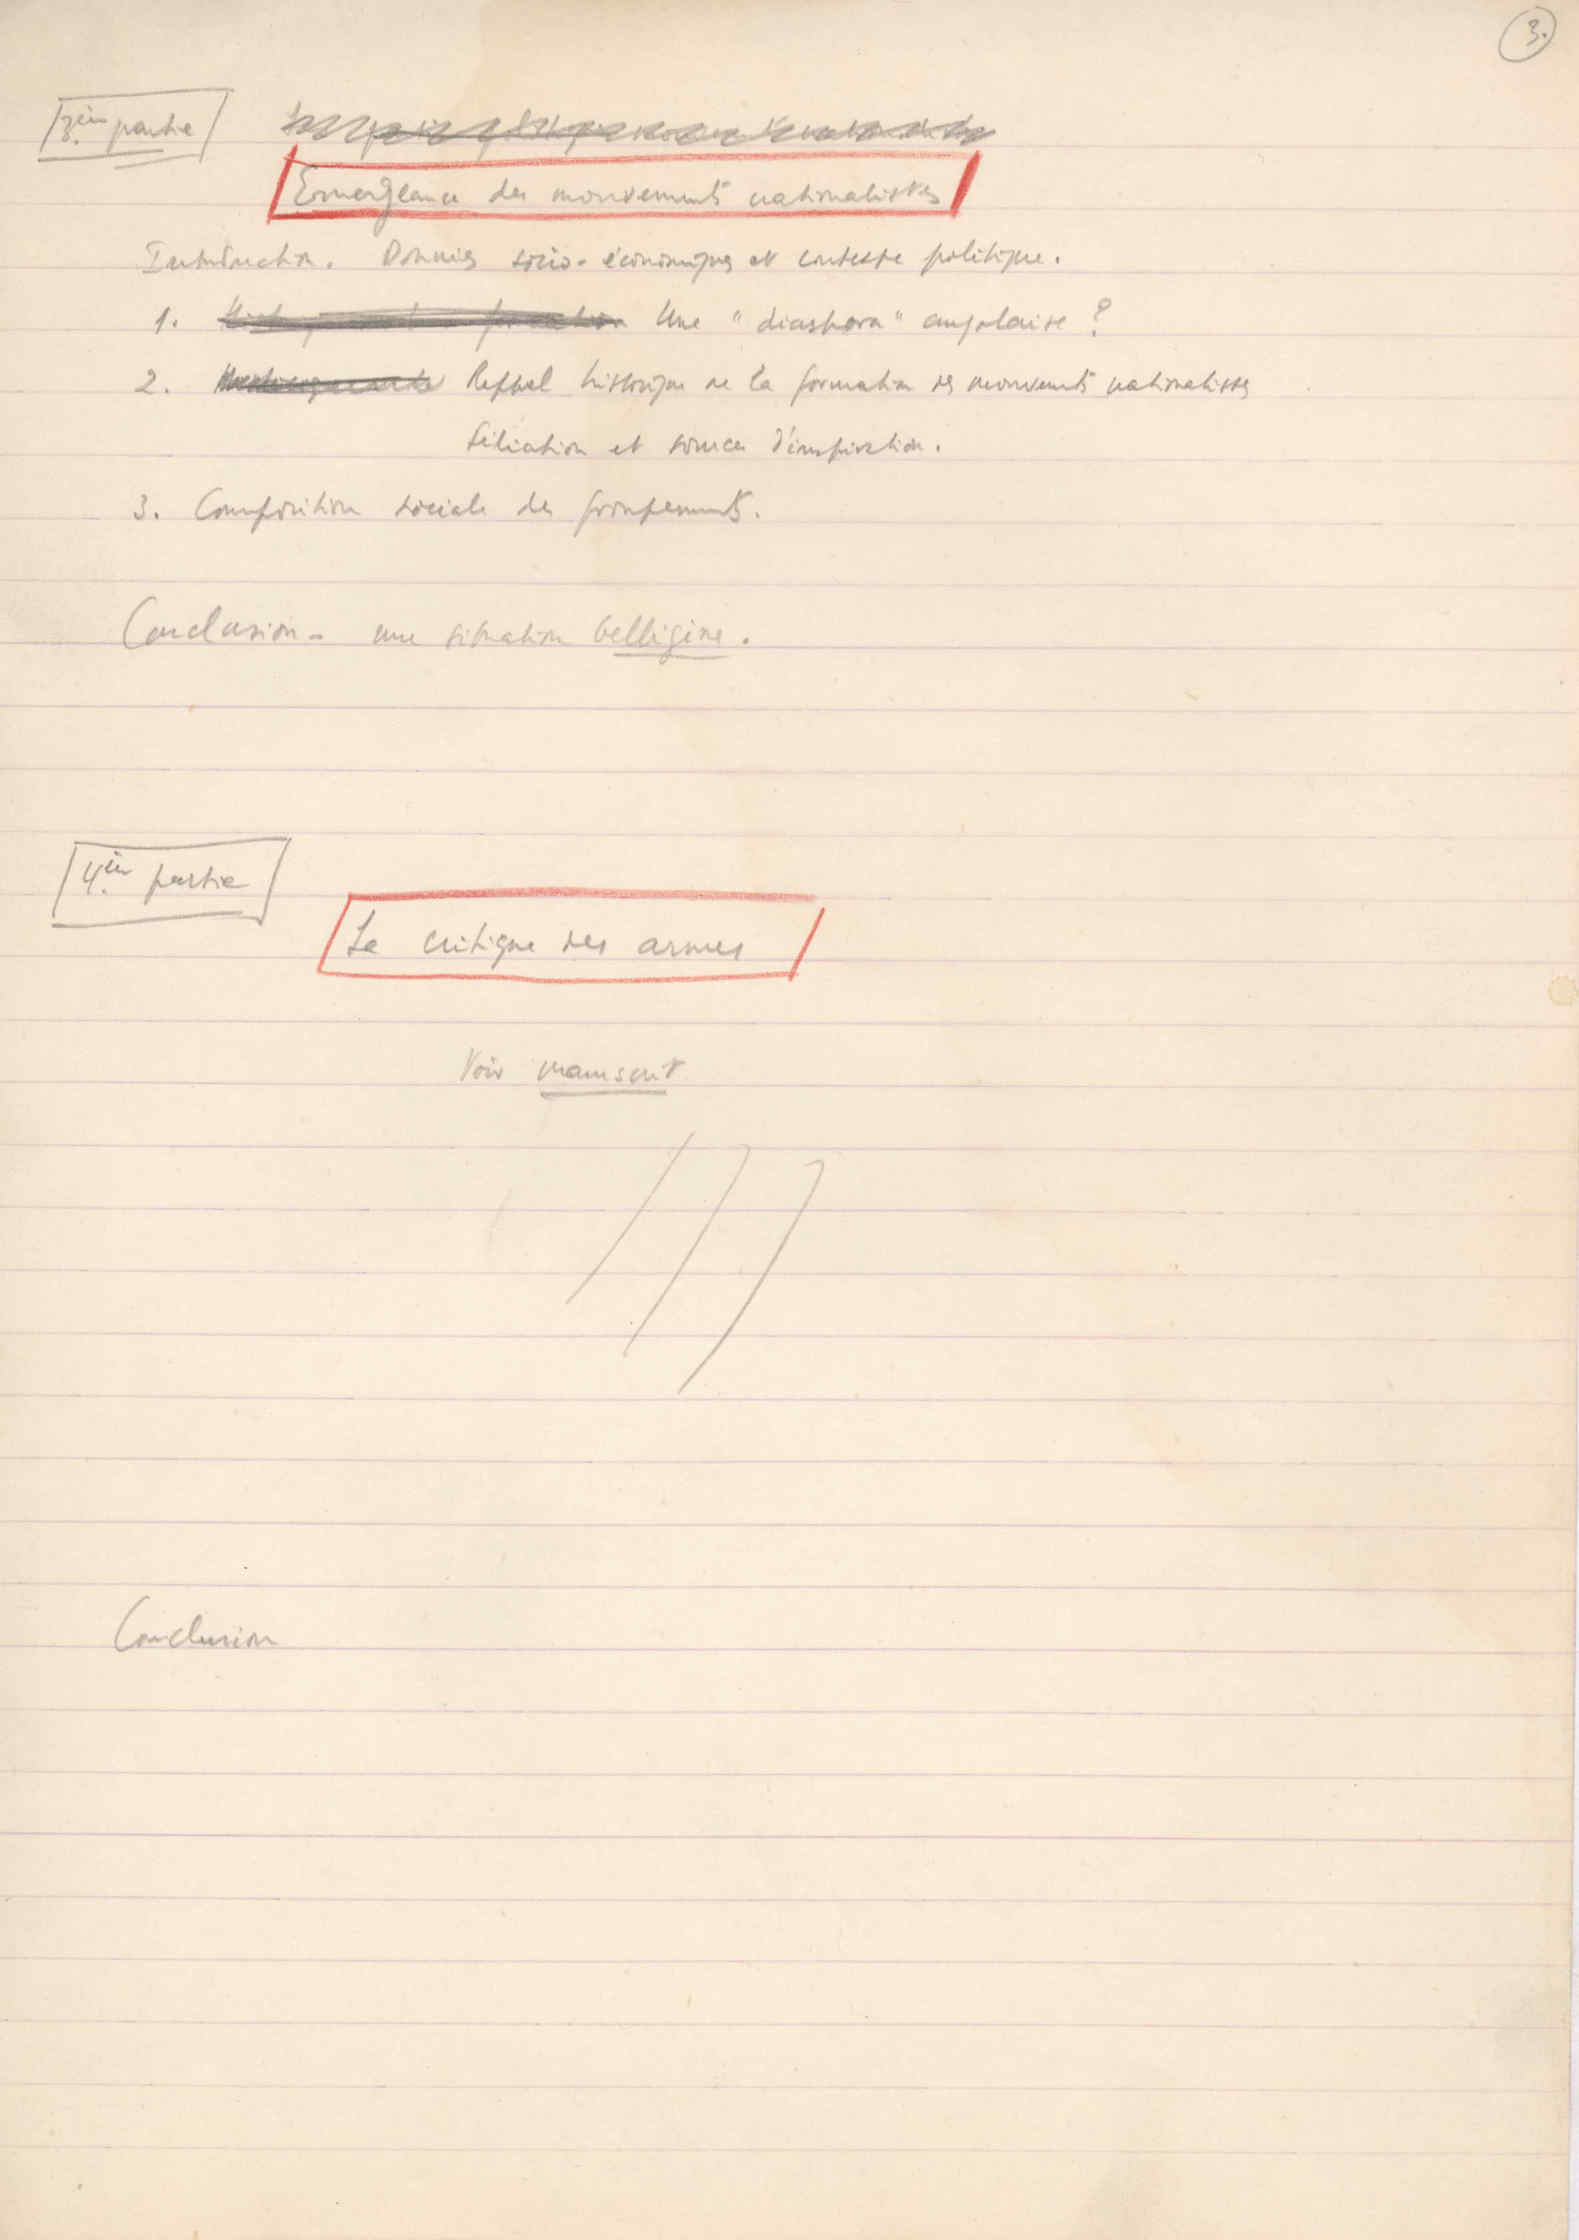 3.
3ème partie
Emergeance des mouvements nationalistes
Introduction. Données socio-économiques et contexte politique.
1. Une "diaspora" angolaise ?
2. Rappel historique de la formation des mouvements nationalistes
filiation et sources d'inspiration.
3. Composition sociale des groupements.
Conclusion - une situation belligène.
4ème partie
La critique des armes
Voir manuscrit
Conclusion